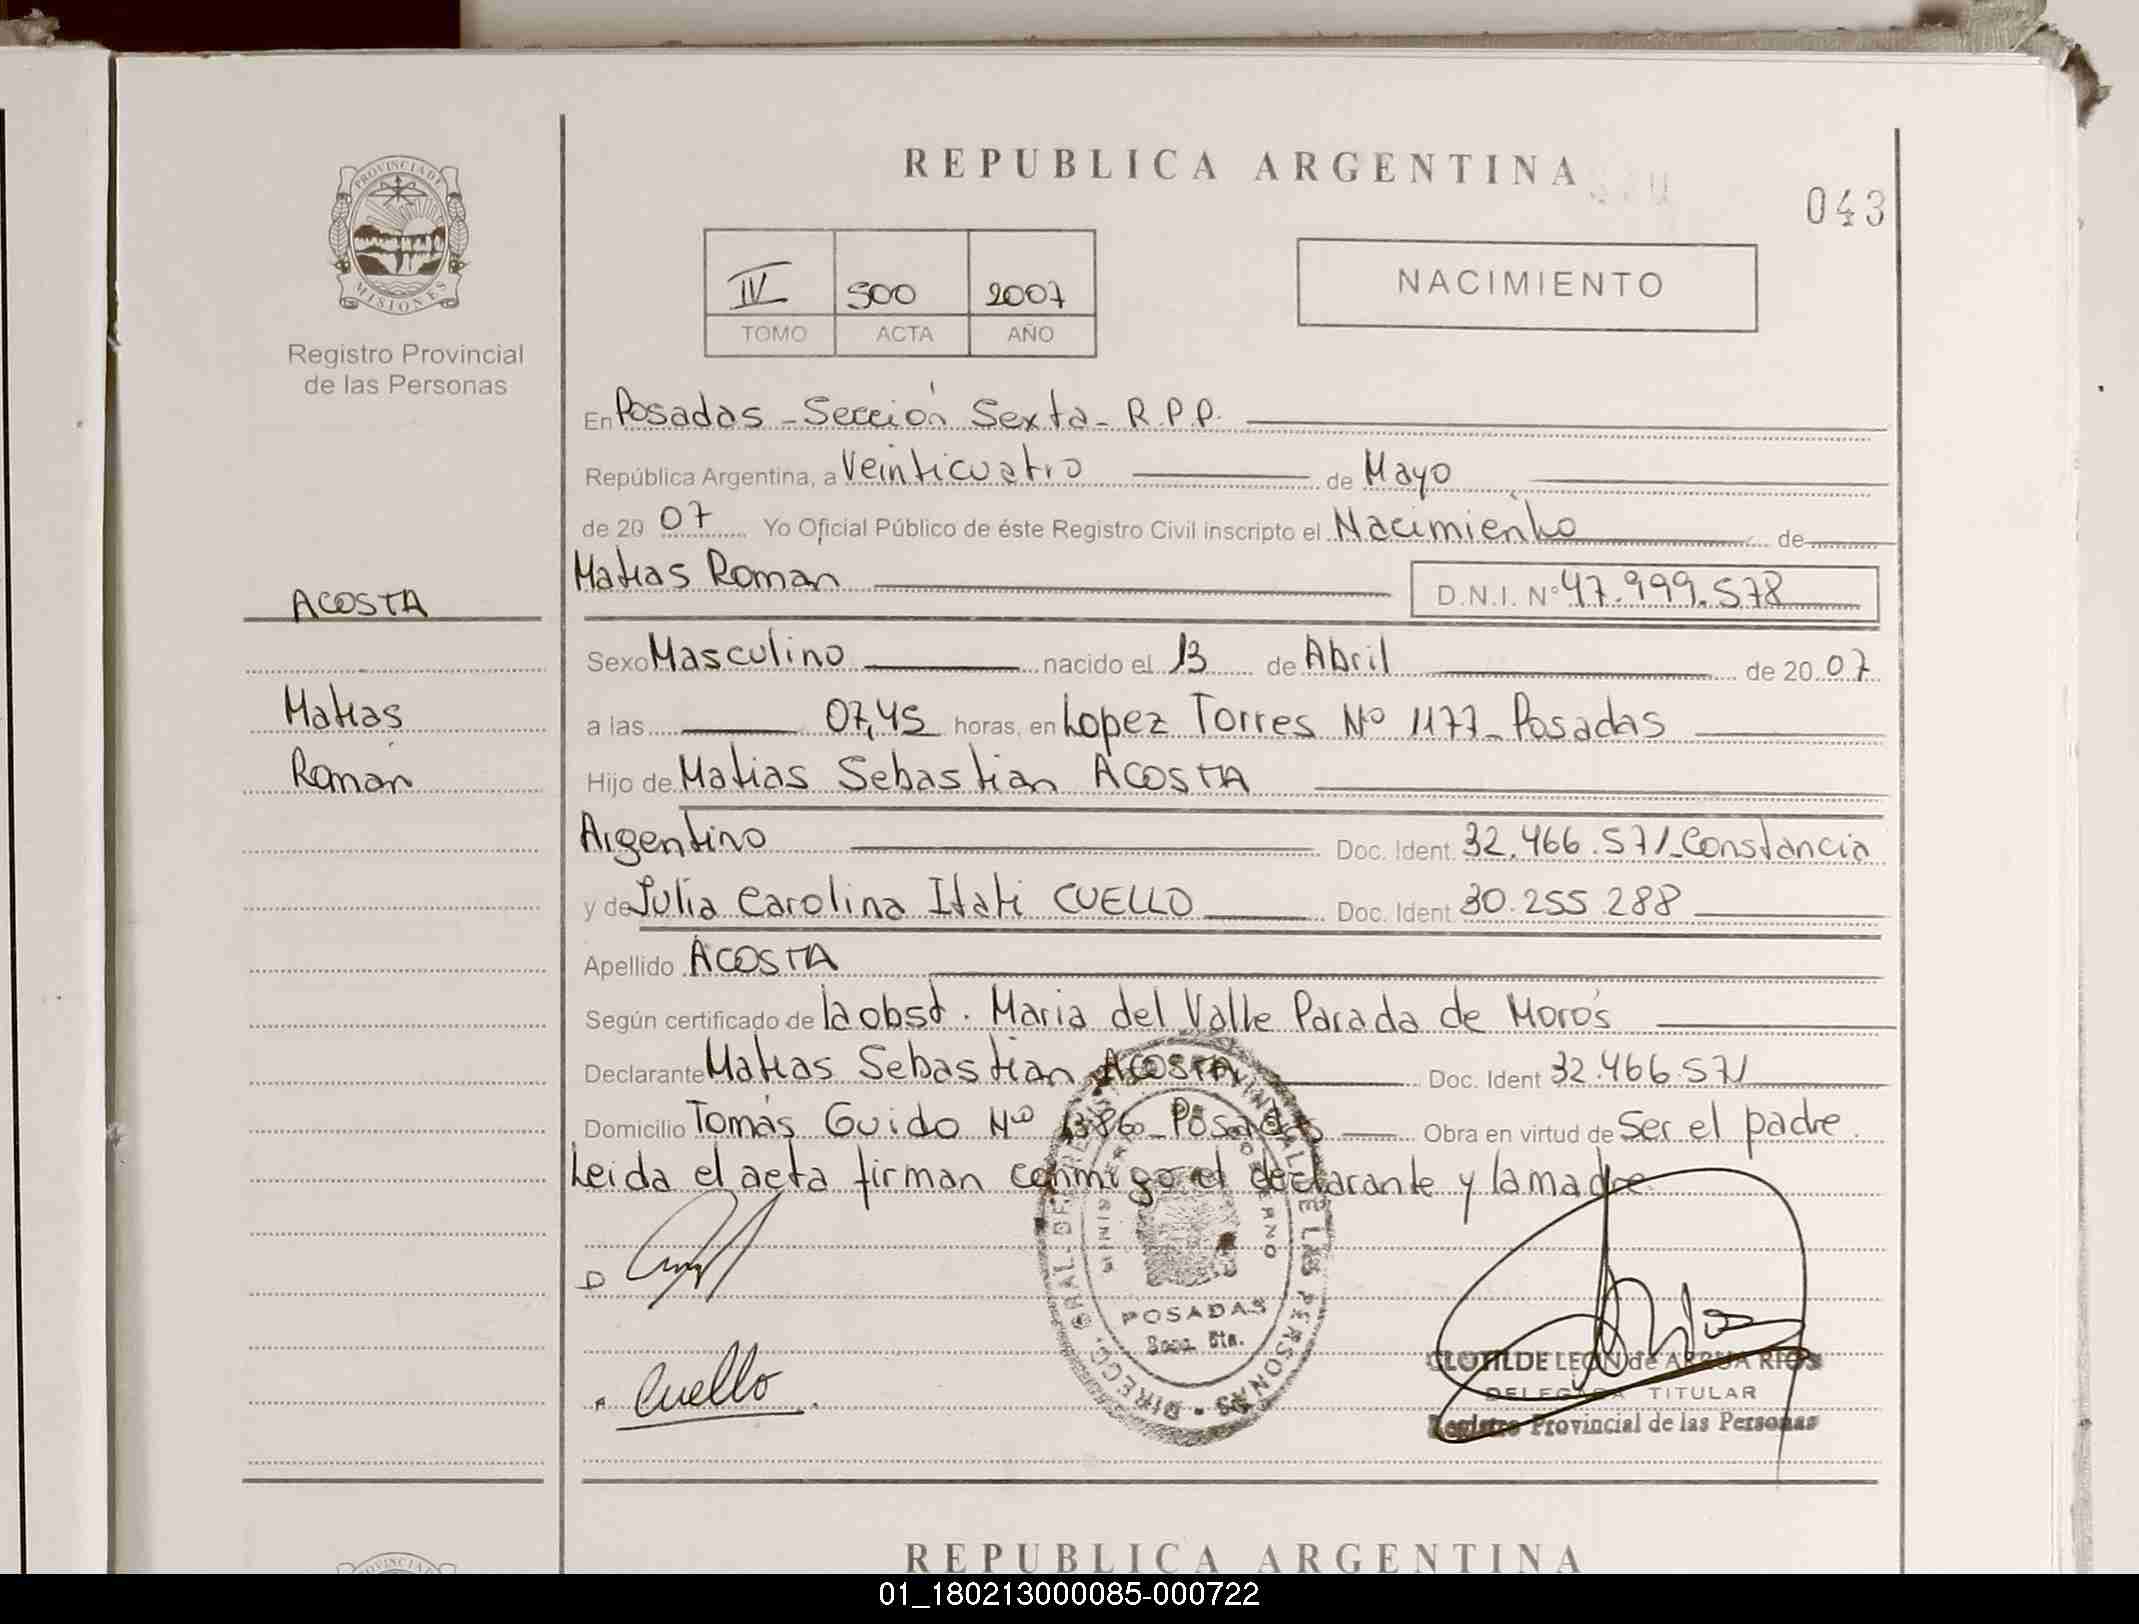 PROVINCIA DE
MISIONES
Registro Provincial
de las Personas
REPUBLICA ARGENTINA
043
IV 500 2007
TOMO ACTA AÑO
NACIMIENTO
En Posadas - Sección Sexta - R.P.P.
República Argentina, a Veinticuatro de Mayo
de 20 07 Yo Oficial Público de éste Registro Civil inscripto el Nacimiento de
Matias Roman D.N.I. Nº 47.999.578
ACOSTA
Sexo Masculino nacido el 13 de Abril de 20 07
Matias
a las 07,45 horas, en Lopez Torres Nº 1177 - Posadas
Román
Hijo de Matias Sebastian ACOSTA
Argentino Doc. Ident. 32.466.571 - Constancia
y de Julia Carolina Itati CUELLO Doc. Ident 30.255.288
Apellido ACOSTA
Según certificado de la obst. Maria del Valle Parada de Morós
Declarante Matias Sebastian ACOSTA Doc. Ident 32.466.571
Domicilio Tomás Guido Nº Posadas Obra en virtud de Ser el padre.
Leida el acta firman conmigo el declarante y la madre
POSADAS
Cuello
CLOTILDE LEON de ARRUA RIOS
DELEGADA TITULAR
Registro Provincial de las Personas
REPUBLICA ARGENTINA
01_180213000085-000722